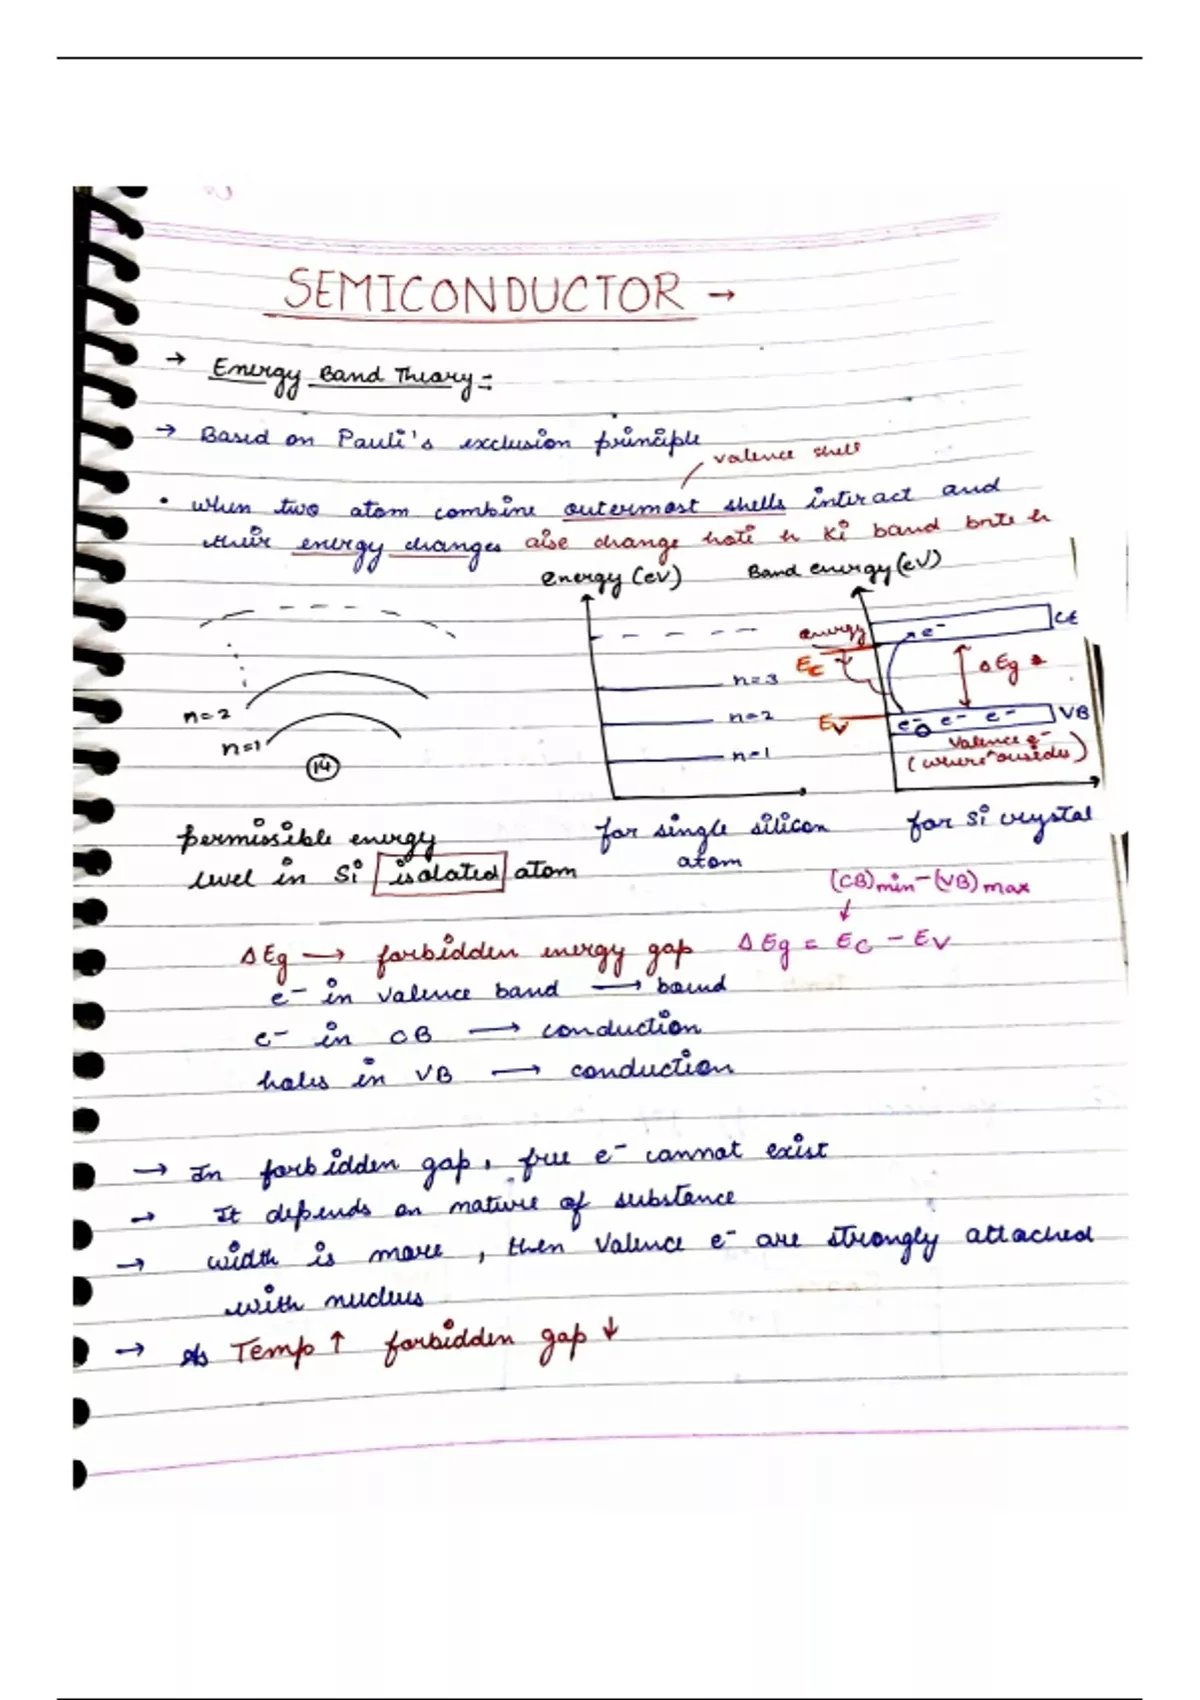 SEMICONDUCTOR →
→ Energy Band Theory :-
→ Based on Pauli's exclusion principle
valence shell
• when two atom combine outermost shells interact and
their energy changes aise change hoti h ki band bnte h
energy (eV)
Band energy (eV)
n=2
n=1
14
n=3
n=2
n=1
energy
Ec
Ev
e-
CB
Δ Eg
e- e- e-
VB
Valence e-
(where resides)
permissible energy
level in Si isolated atom
for single silicon
atom
for Si crystal
(CB)min - (VB)max
↓
Δ Eg → forbidden energy gap Δ Eg = Ec - Ev
e- in valence band → bound
e- in CB → conduction
holes in VB → conduction
→ In forbidden gap, free e- cannot exist
→ It depends on nature of substance
→ width is more, then Valence e- are strongly attached
with nucleus
→ As Temp ↑ forbidden gap ↓